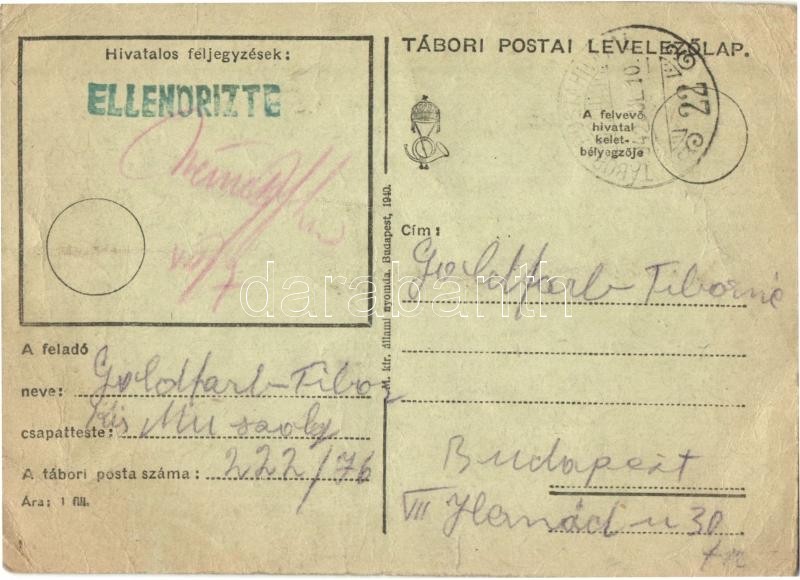 Hivatalos feljegyzések:
ELLENŐRIZTE
VII/7
TÁBORI POSTAI LEVELEZŐLAP.
A felvevő
hivatal
kelet-
bélyegzője
22
TÁBORI
M. kir. állami nyomda. Budapest, 1940.
darabanth
Cím:
Goldfarb Tiborné
Budapest
VII Hernád u 30
A feladó
neve: Goldfarb Tibor
csapatteste: Kis Mü szolg
A tábori posta száma: 222/76
Ára: 1 fill.